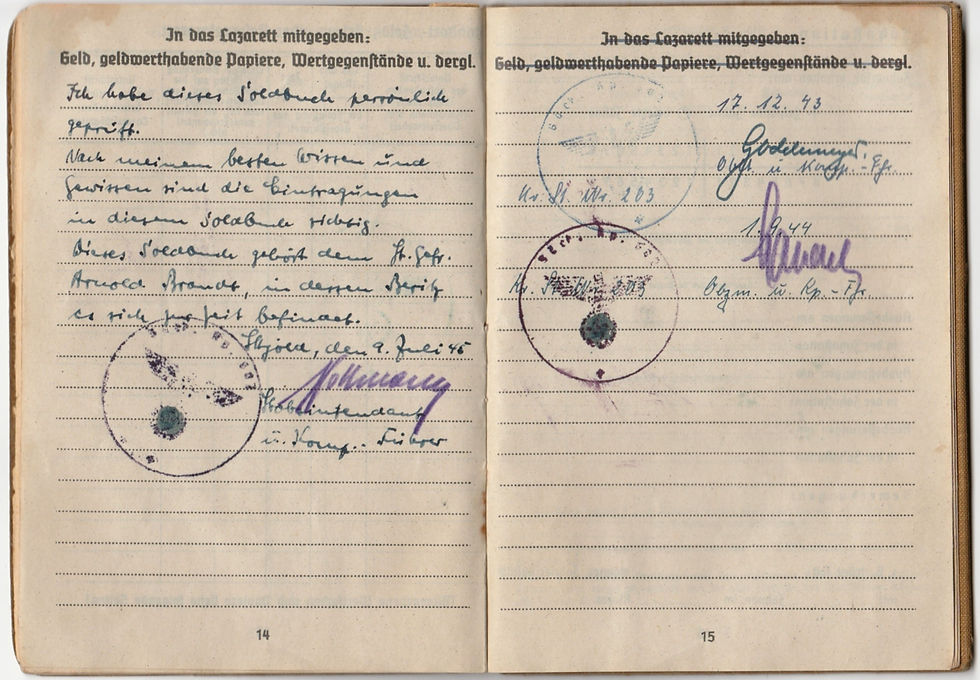 In das Lazarett mitgegeben:
Geld, geldwerthabende Papiere, Wertgegenstände u. dergl.
Ich habe dieses Soldbuch persönlich
geprüft.
Nach meinem besten Wissen und
Gewissen sind die Eintragungen
in diesem Soldbuch richtig.
Dieses Soldbuch gehört dem St. Gefr.
Arnold Brandt, in dessen Besitz
es sich zur Zeit befindet.
den 9. Juli 45
Stabsintendant
u. Komp.-Führer
14
In das Lazarett mitgegeben:
Geld, geldwerthabende Papiere, Wertgegenstände u. dergl.
17. 12. 43
u. Komp.-Fhr.
Kr. St. Nr. 203
1. 9. 44
Kr. St. Nr. 203
Obzm. u. Kp.-Fhr.
15